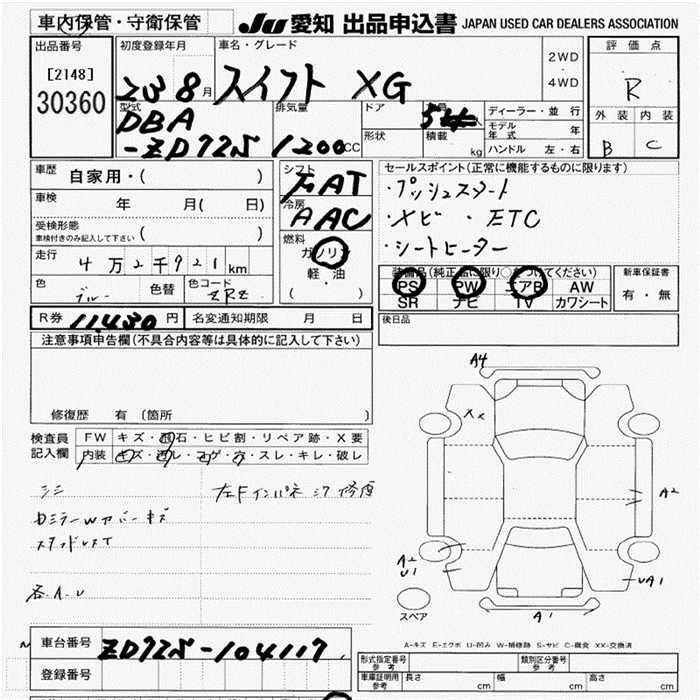 車内保管・守衛保管
JU 愛知 出品申込書 JAPAN USED CAR DEALERS ASSOCIATION
出品番号
[2148]
30360
初度登録年月
23 8月
車名・グレード
スイフト XG
2WD
・
4WD
評価点
R
外装 内装
B C
型式
DBA
-ZD72S
排気量
1200cc
ドア
形状
積載
kg
ディーラー・並行
モデル年式 年
ハンドル 左・右
車歴
自家用・( )
車検
年 月( 日)
受検形態
車検付きのみ記入して下さい ( )
走行
4万2千921km
色
ブルー
色替
色コード
ZRZ
シフト
FAT
冷房
AAC
燃料
ガソリン
軽・油
( )
セールスポイント(正常に機能するものに限ります)
・プッシュスタート
・ナビ・ETC
・シートヒーター
装備品(純正品に限り○をつけてください)
PS PW エアB AW
SR ナビ TV カワシート
新車保証書
有・無
R券 11,430円
名変通知期限 月 日
後日品
注意事項申告欄(不具合内容等は具体的に記入して下さい)
修復歴 有 (箇所
検査員記入欄
FW キズ・飛石・ヒビ割・リペア跡・X要
内装 キズ・汚レ・コゲ・穴・スレ・キレ・破レ
左Fインパネ シワ 修復
ミラーWカバーキズ
スタッドレスT
各A.U
A4
A2
A2
U1
UA1
A1
スペア
A-キズ E-エクボ U-凹み W-補修跡 S-サビ C-腐食 XX-交換済
車台番号
ZD72S-104117
登録番号
型式指定番号
参考
類別区分番号
参考
車庫証明用
参考
長さ cm
幅 cm
高さ cm